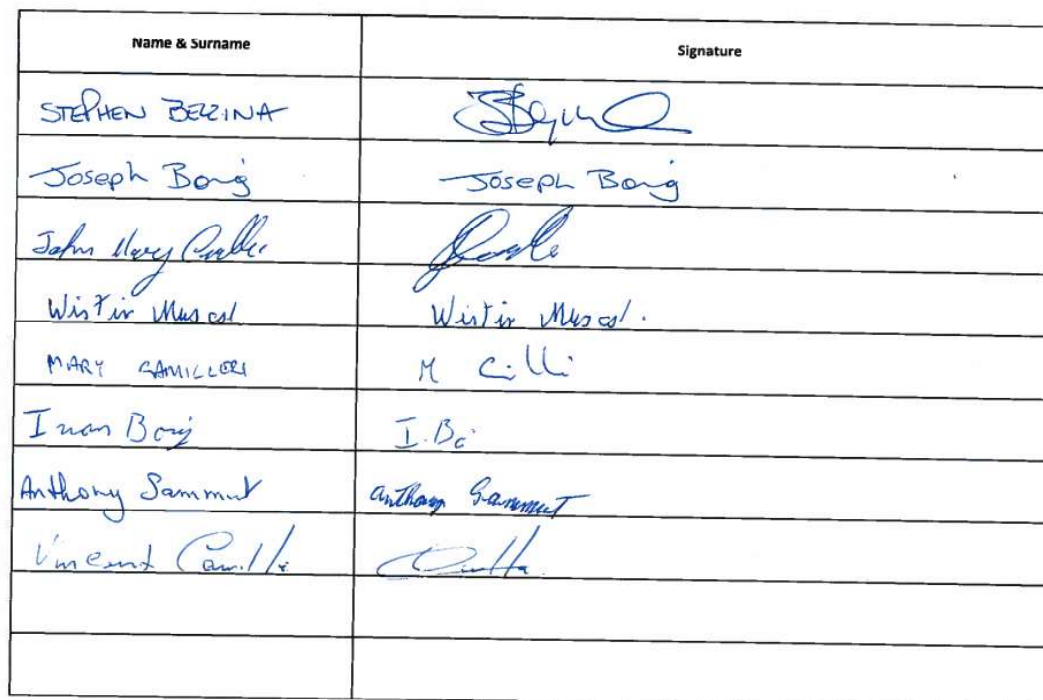 Name & Surname Signature
STEPHEN BEZZINA
Joseph Borg Joseph Borg
John Mary
Wistin Muscat Wistin Muscat.
MARY CAMILLERI M
Ivan Borg I.
Anthony Sammut Anthony Sammut
Vincent